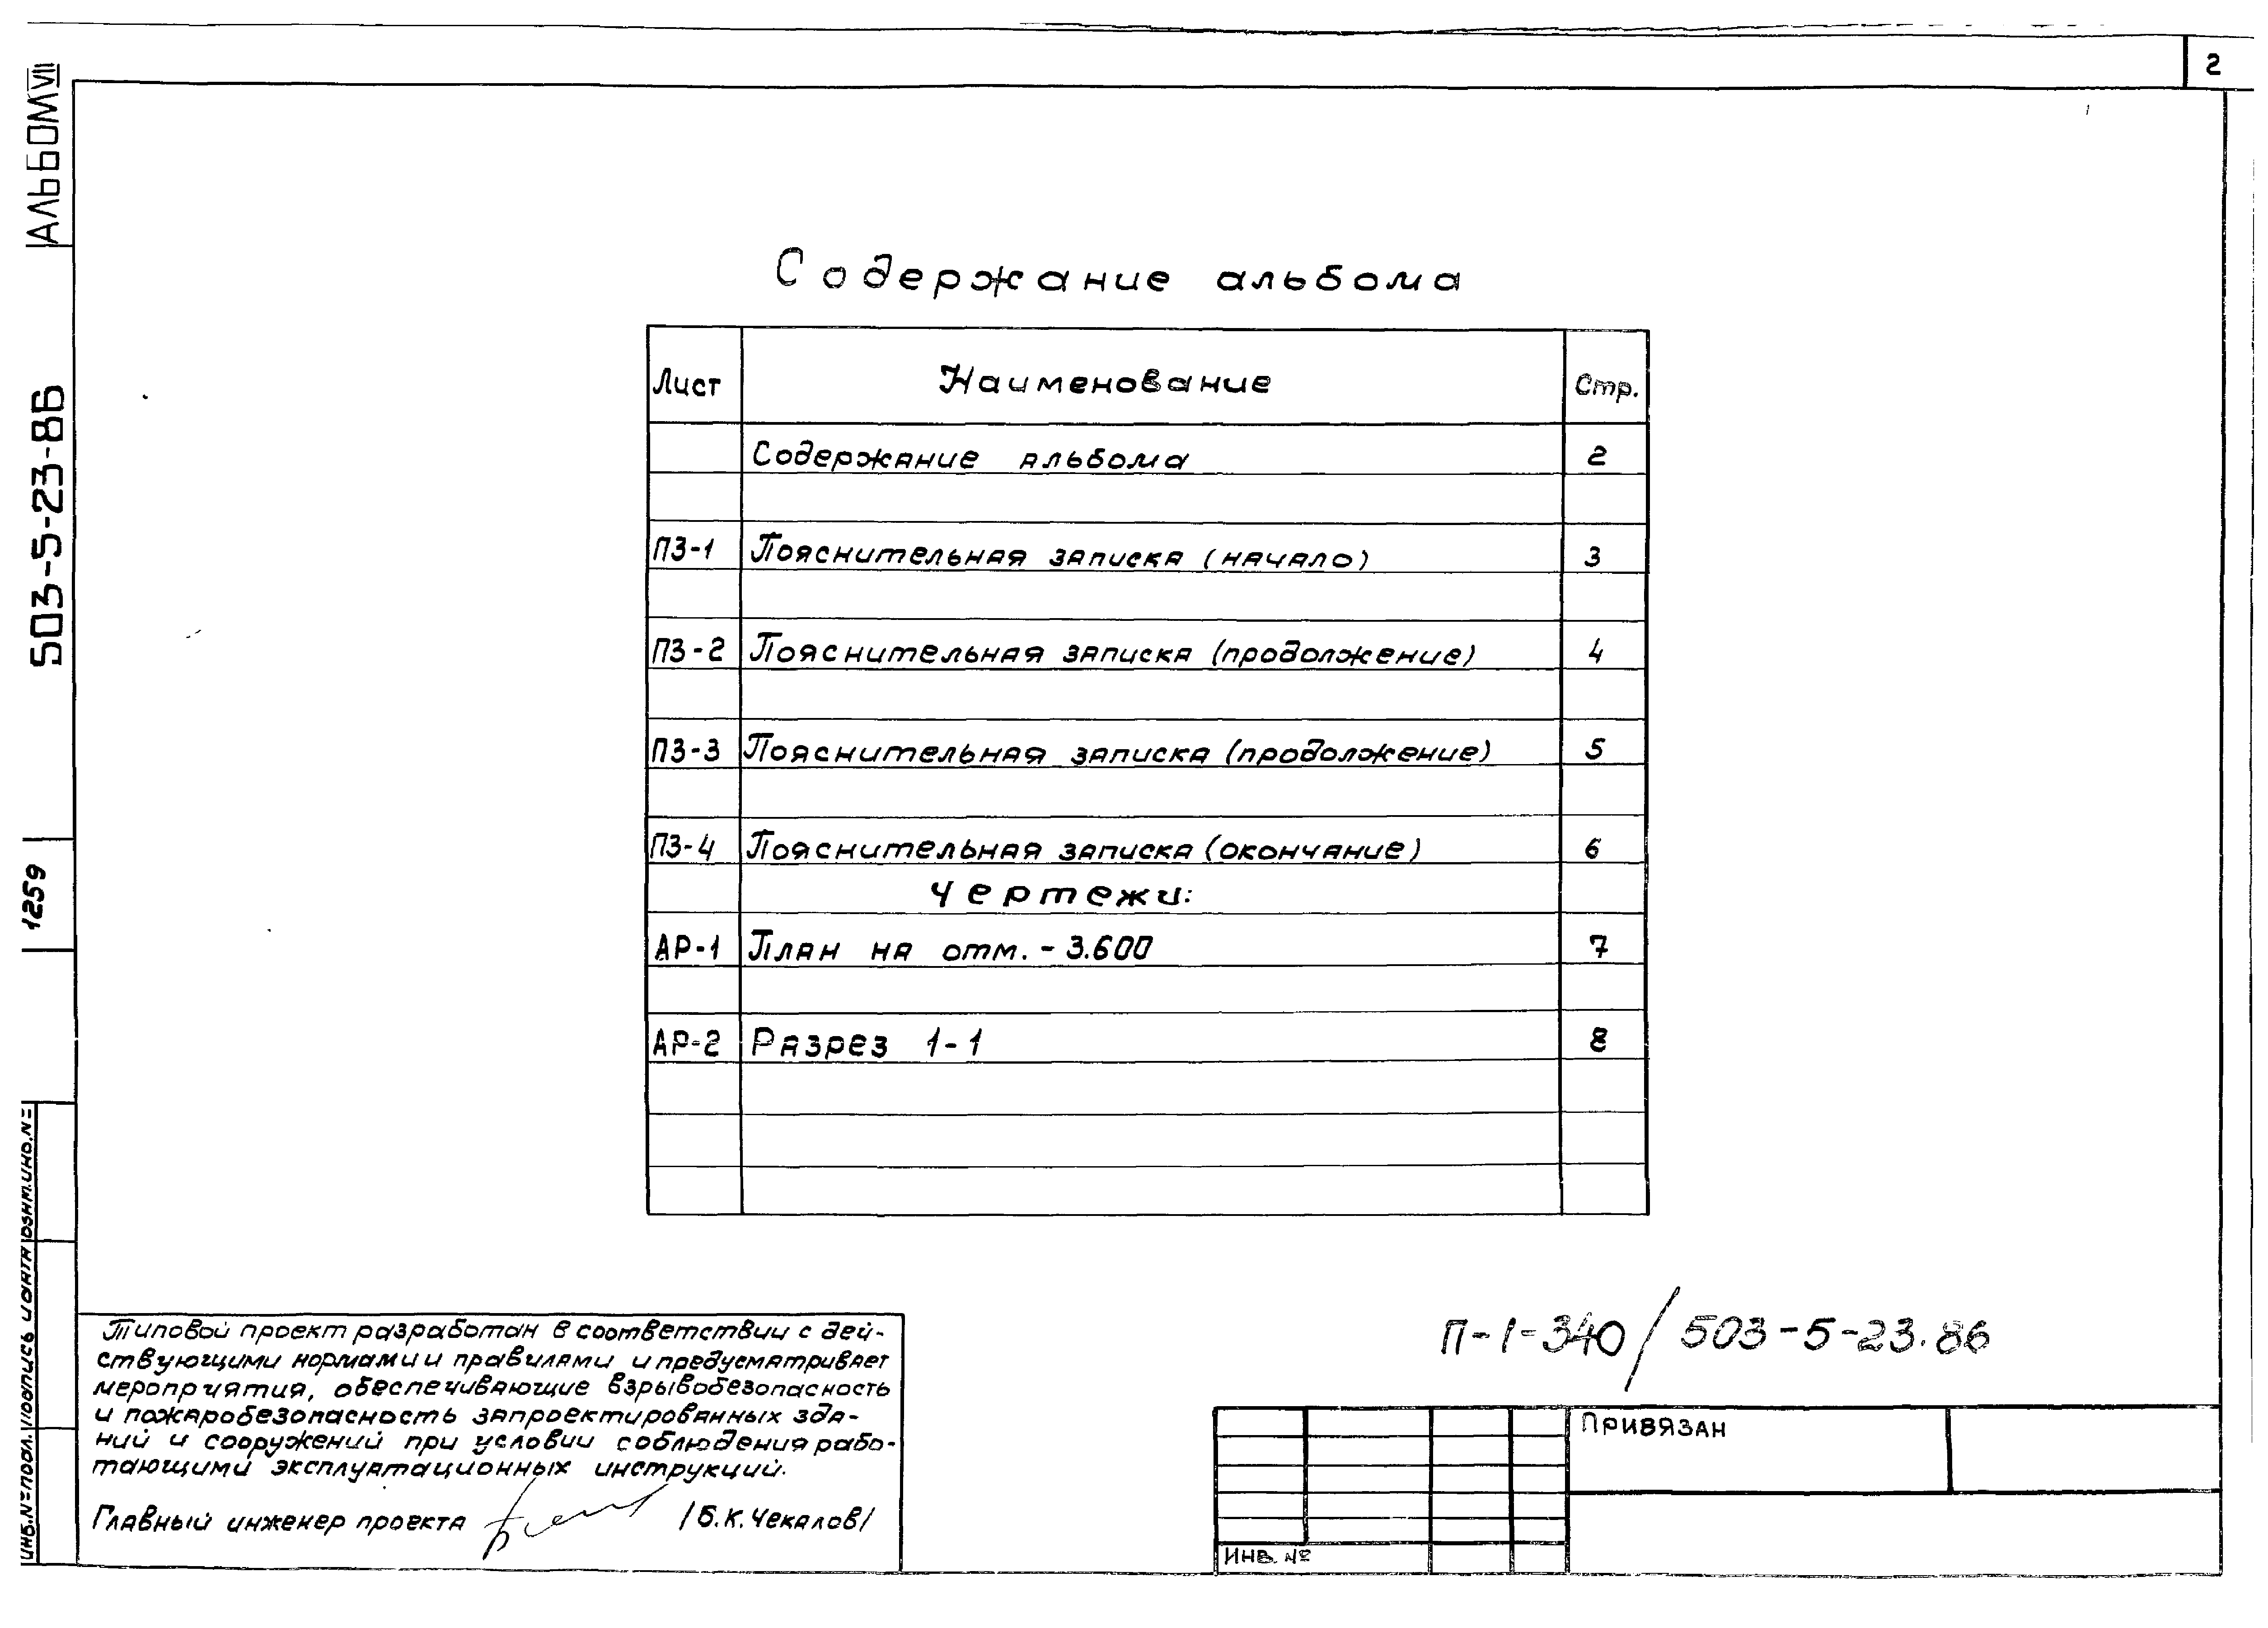 2
АЛЬБОМ VII
503-5-23-86
1259
Содержание альбома
Лист Наименование Стр.
Содержание альбома 2
ПЗ-1 Пояснительная записка (начало) 3
ПЗ-2 Пояснительная записка (продолжение) 4
ПЗ-3 Пояснительная записка (продолжение) 5
ПЗ-4 Пояснительная записка (окончание) 6
Чертежи:
АР-1 План на отм. - 3.600 7
АР-2 Разрез 1-1 8
ИНВ.№ПОДЛ. ПОДПИСЬ И ДАТА ВЗАМ.ИНВ.№
Типовой проект разработан в соответствии с дей-
ствующими нормами и правилами и предусматривает
мероприятия, обеспечивающие взрывобезопасность
и пожаробезопасность запроектированных зда-
ний и сооружений при условии соблюдения рабо-
тающими эксплуатационных инструкций.
Главный инженер проекта /Б.К.Чекалов/
П-1-340/503-5-23.86
ПРИВЯЗАН
ИНВ. №